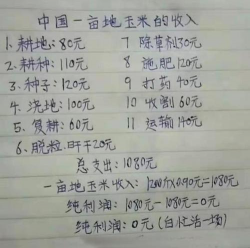 中国一亩地玉米的收入
1、耕地:80元 7 除草剂30元
2、耕种:110元 8 施肥:120元
3、种子:120元 9 打药40元
4、浇地:100元 10 收割60元
5、复耕:60元 11 运输140元
6、脱粒 旰干20元
总支出:1080元
一亩地玉米收入:1200斤×0.90元=1080元
纯利润:1080元-1080元=0元
纯利润:0元(白忙活一场)